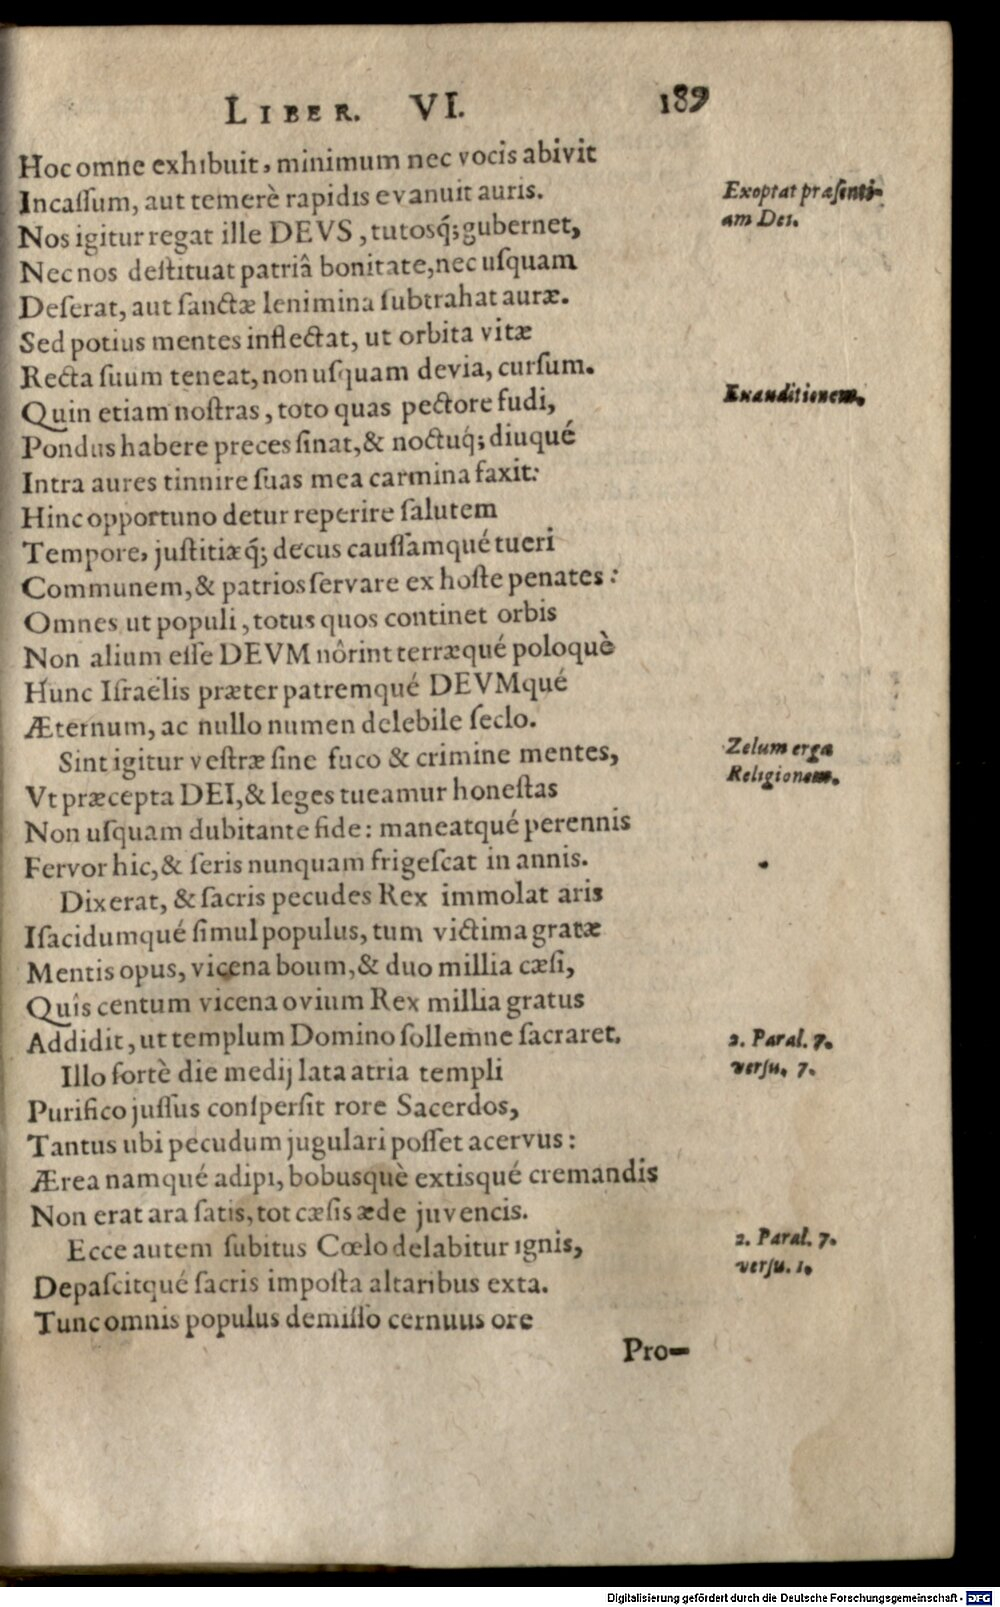 LIBER. VI. 189
Hoc omne exhibuit, minimum nec vocis abivit
Incaſſum, aut temerè rapidis evanuit auris.
Exoptat præſenti-
am Dei.
Nos igitur regat ille DEVS, tutosq́; gubernet,
Nec nos deſtituat patriâ bonitate, nec uſquam
Deſerat, aut ſanctæ lenimina ſubtrahat auræ.
Sed potius mentes inflectat, ut orbita vitæ
Recta ſuum teneat, non uſquam devia, curſum.
Exauditionem.
Quin etiam noſtras, toto quas pectore fudi,
Pondus habere preces ſinat, & noctuq́; diuqué
Intra aures tinnire ſuas mea carmina faxit:
Hinc opportuno detur reperire ſalutem
Tempore, juſtitiæq́; decus cauſſamqué tueri
Communem, & patrios ſervare ex hoſte penates:
Omnes ut populi, totus quos continet orbis
Non alium eſſe DEVM nôrint terræqué poloquè
Hunc Iſraëlis præter patremqué DEVMqué
Æternum, ac nullo numen delebile ſeclo.
Sint igitur veſtræ ſine fuco & crimine mentes,
Zelum erga
Religionem.
Vt præcepta DEI, & leges tueamur honeſtas
Non uſquam dubitante fide: maneatqué perennis
Fervor hic, & ſeris nunquam frigeſcat in annis.
Dixerat, & ſacris pecudes Rex immolat aris
Iſacidumqué ſimul populus, tum victima gratæ
Mentis opus, vicena boum, & duo millia cæſi,
Quîs centum vicena ovium Rex millia gratus
Addidit, ut templum Domino ſollemne ſacraret.
2. Paral. 7.
verſu. 7.
Illo fortè die medij lata atria templi
Purifico juſſus conſperſit rore Sacerdos,
Tantus ubi pecudum jugulari poſſet acervus:
Ærea namqué adipi, bobusquè extisqué cremandis
Non erat ara ſatis, tot cæſis æde juvencis.
Ecce autem ſubitus Cœlo delabitur ignis,
2. Paral. 7.
verſu. 1.
Depaſcitqué ſacris impoſta altaribus exta.
Tunc omnis populus demiſſo cernuus ore
Pro-
Digitalisierung gefördert durch die Deutsche Forschungsgemeinschaft - DFG